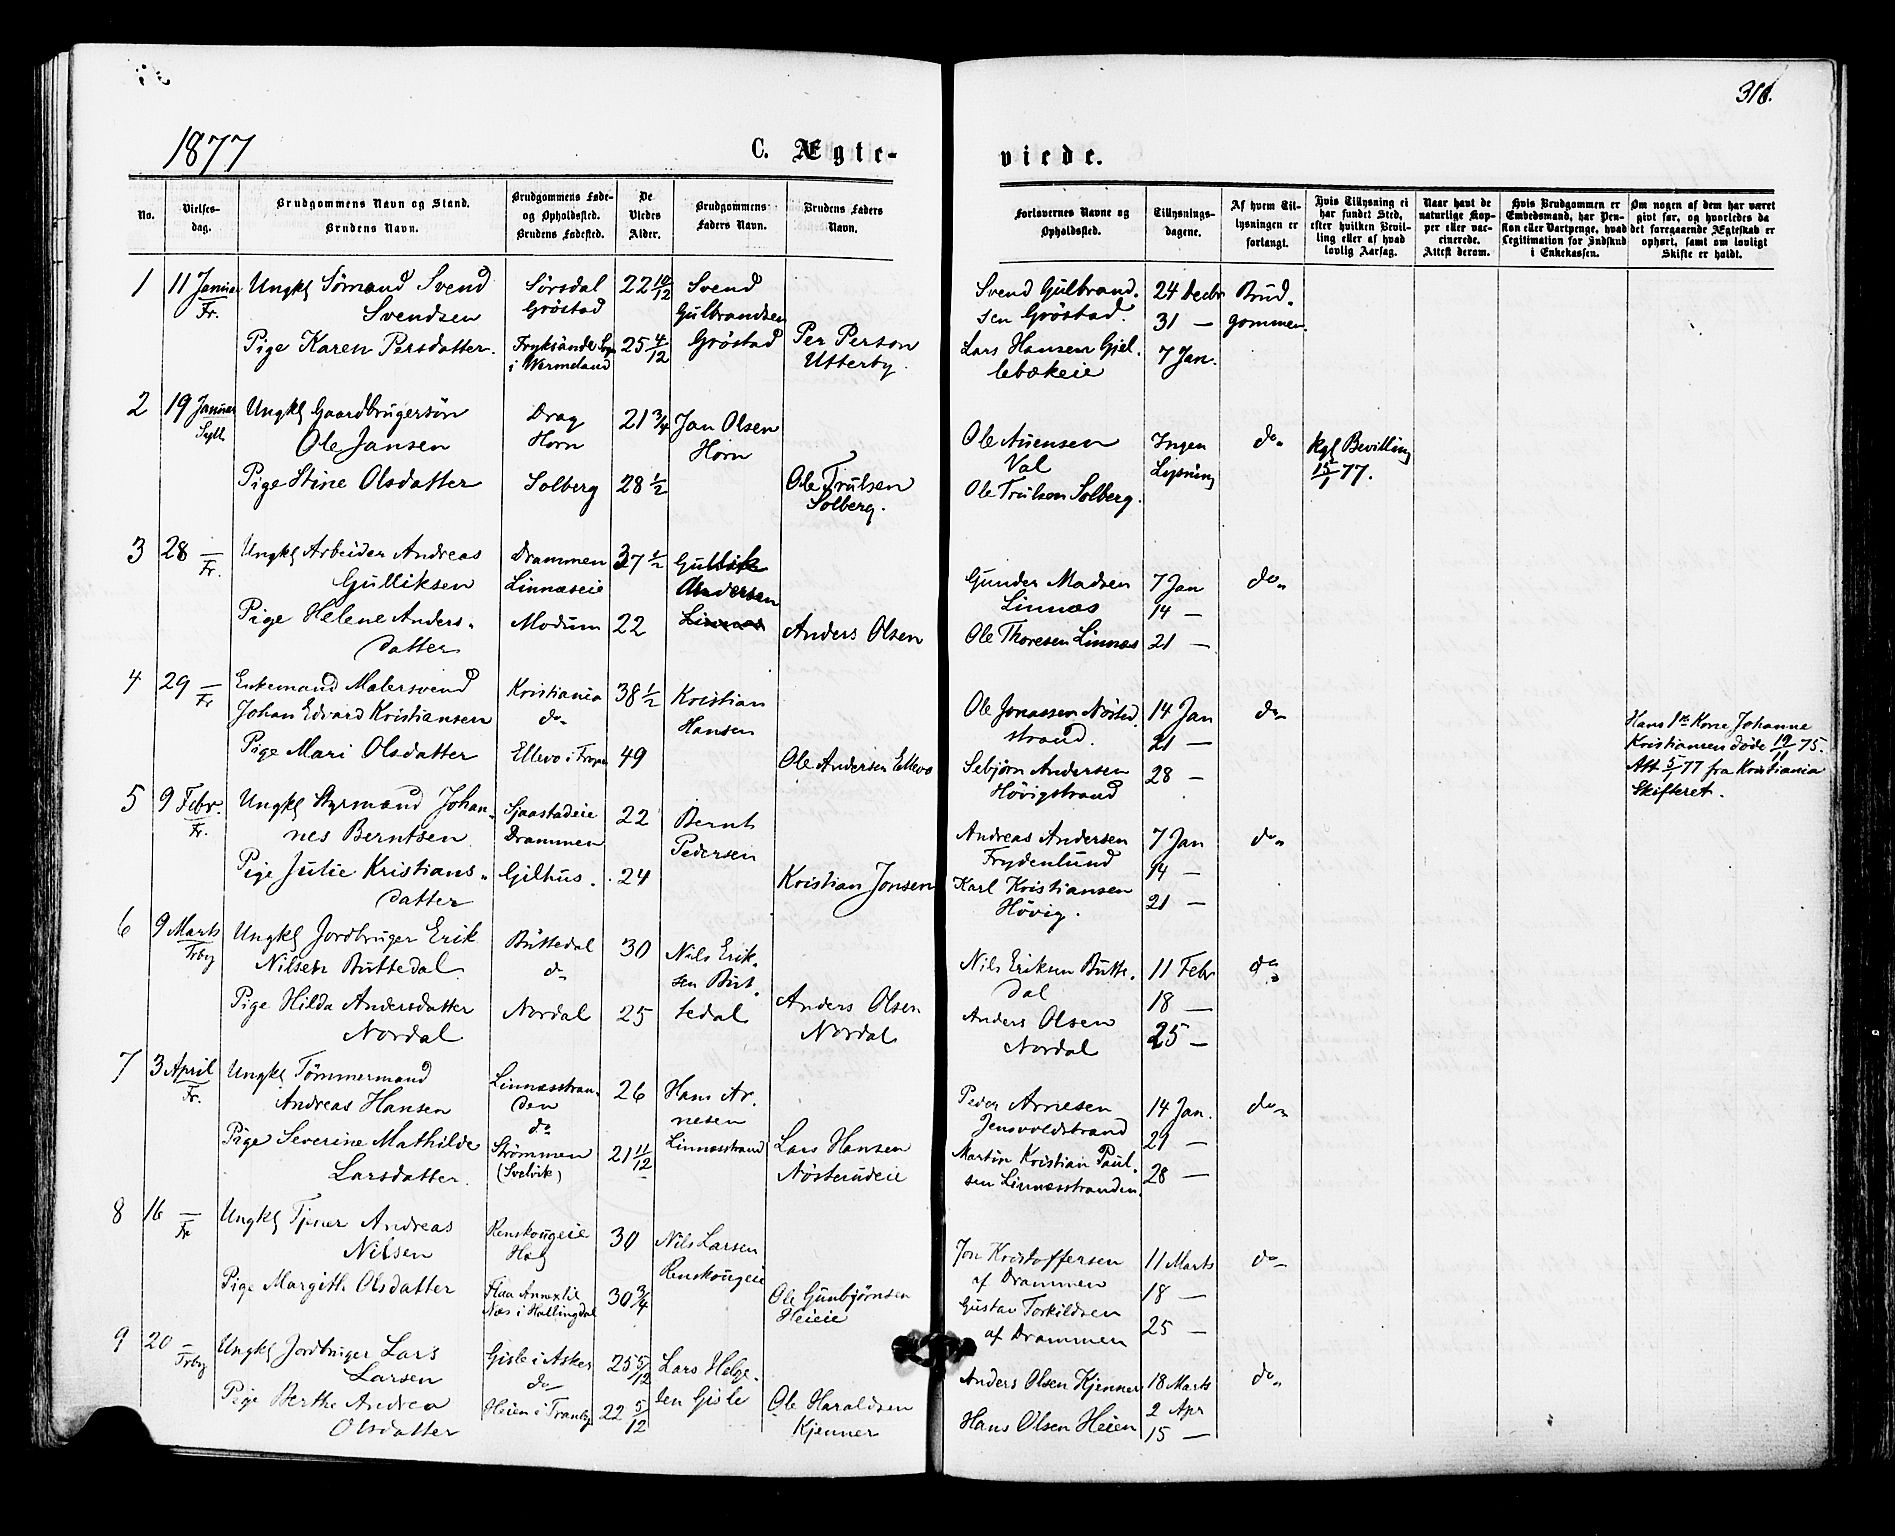 318.
1877
C. Ægte-
viede.
No.
Vielses-
dag.
Brudgommens Navn og Stand.
Brudens Navn.
Brudgommens Føde-
og Opholdssted.
Brudens Fødested.
De
Viedes
Alder.
Brudgommens
Faders Navn.
Brudens Faders
Navn.
Forlovernes Navne og
Opholdssted.
Tillysnings-
dagene.
Af hvem Til-
lysningen er
forlangt.
Hvis Tillysning ei
har fundet Sted,
efter hvilken Bevil-
ling eller af hvad
lovlig Aarsag.
Naar havt de
naturlige Kop-
per eller vac-
cinerede.
Attest derom.
Hvis Brudgommen er
Embedsmand, har Pen-
sion eller Vartpenge, hvad
Legitimation for Indskud
i Enkekassen.
Om nogen af dem har været
gift før, og hvorledes da
det foregaaende Ægteskab er
ophørt, samt om lovligt
Skifte er holdt.
1
11 Januar
Fr.
Ungkl Sömand Svend
Svendsen
Pige Karen Persdatter.
Sörsdal
Gröstad
Fryksände Sogn
i Wermeland
22 10/12
25 4/12
Svend
Gulbrandsen
Gröstad
Per Person
Utterby.
Svend Gulbrand-
sen Gröstad.
Lars Hansen Gjel-
lebækeie
24 Decbr
31 —
7 Jan.
Brud-
gommen.
2
19 Januar
Syll.
Ungkl Gaardbrugersön
Ole Jansen
Pige Stine Olsdatter
Drag
Horn
Solberg
21 3/4
28 1/2
Jan Olsen
Horn
Ole Trulsen
Solberg.
Ole Auensen
Val
Ole Trulsen Solberg.
Ingen
Lysning
do
Kgl Bevilling
15/1 77.
3
28 —
Fr.
Ungkl Arbeider Andreas
Gulliksen
Pige Helene Anders-
datter
Drammen
Linnæseie
Modum
37 1/2
22
Gullik
Andersen
Linnæs
Anders Olsen
Gunder Madsen
Linnæs
Ole Thoresen Linnæs
7 Jan
14 —
21 —
do
4
29 —
Fr
Enkemand Malersvend
Johan Edvard Kristiansen
Pige Mari Olsdatter
Kristiania
do
Ellevo i Frogn
38 1/2
49
Kristian
Hansen
Ole Andersen Ellevo
Ole Jonassen Nöste-
strand.
Sebjörn Andersen
Hövigstrand
14 Jan
21 —
28 —
do
Hans 1ste Kone Johanne
Kristiansen döde 19/11 75.
Att 5/1 77 fra Kristiania
Skifteret.
5
9 Febr.
Fr.
Ungkl Styrmand Johan-
nes Berntsen
Pige Julie Kristians-
datter
Sjaastadeie
Drammen
Gilhus.
22
24
Bernt
Pedersen
Kristian Jonsen
Andreas Andersen
Frydenlund
Karl Kristiansen
Hövig.
7 Jan
14 —
21 —
do
6
9 Marts
Frby
Ungkl Jordbruger Erik
Nilsen Buttedal
Pige Hilda Andersdatter
Nordal
Buttedal
do
Nordal
30
25
Nils Erik-
sen But-
tedal
Anders Olsen
Nordal
Nils Eriksen Butte-
dal
Anders Olsen
Nordal
11 Febr
18 —
25 —
do
7
3 April
Fr.
Ungkl Tömmermand
Andreas Hansen
Pige Severine Mathilde
Larsdatter.
Linnæsstran-
den
do
Strömmen
(Svelvik)
26
21 11/12
Hans Ar-
nesen
Linnæsstrand
Lars Hansen
Nösterudeie
Peder Arnesen
Jensvoldstrand
Martin Kristian Paul-
sen Linnæsstranden.
14 Jan.
21 —
28 —
do
8
16 —
Fr
Ungkl Tjener Andreas
Nilsen
Pige Margith Olsdatter
Renskougeie
Hag
Flaa Annex til
Næs i Hallingdal
30
30 3/4
Nils Larsen
Renskougeie
Ole Gunbjörnsen
Heieie
Jon Kristoffersen
af Drammen
Gustav Torkildsen
af Drammen
11 Marts
18 —
25 —
do
9
20 —
Frby
Ungkl Jordbruger Lars
Larsen
Pige Berthe Andrea
Olsdatter
Gisle i Asker
do
Heien i Tranby
25 5/12
22 5/12
Lars Helge-
sen Gisle
Ole Haraldsen
Kjenner
Anders Olsen Kjenner
Hans Olsen Heien
18 Marts
2 Apr
15 —
do